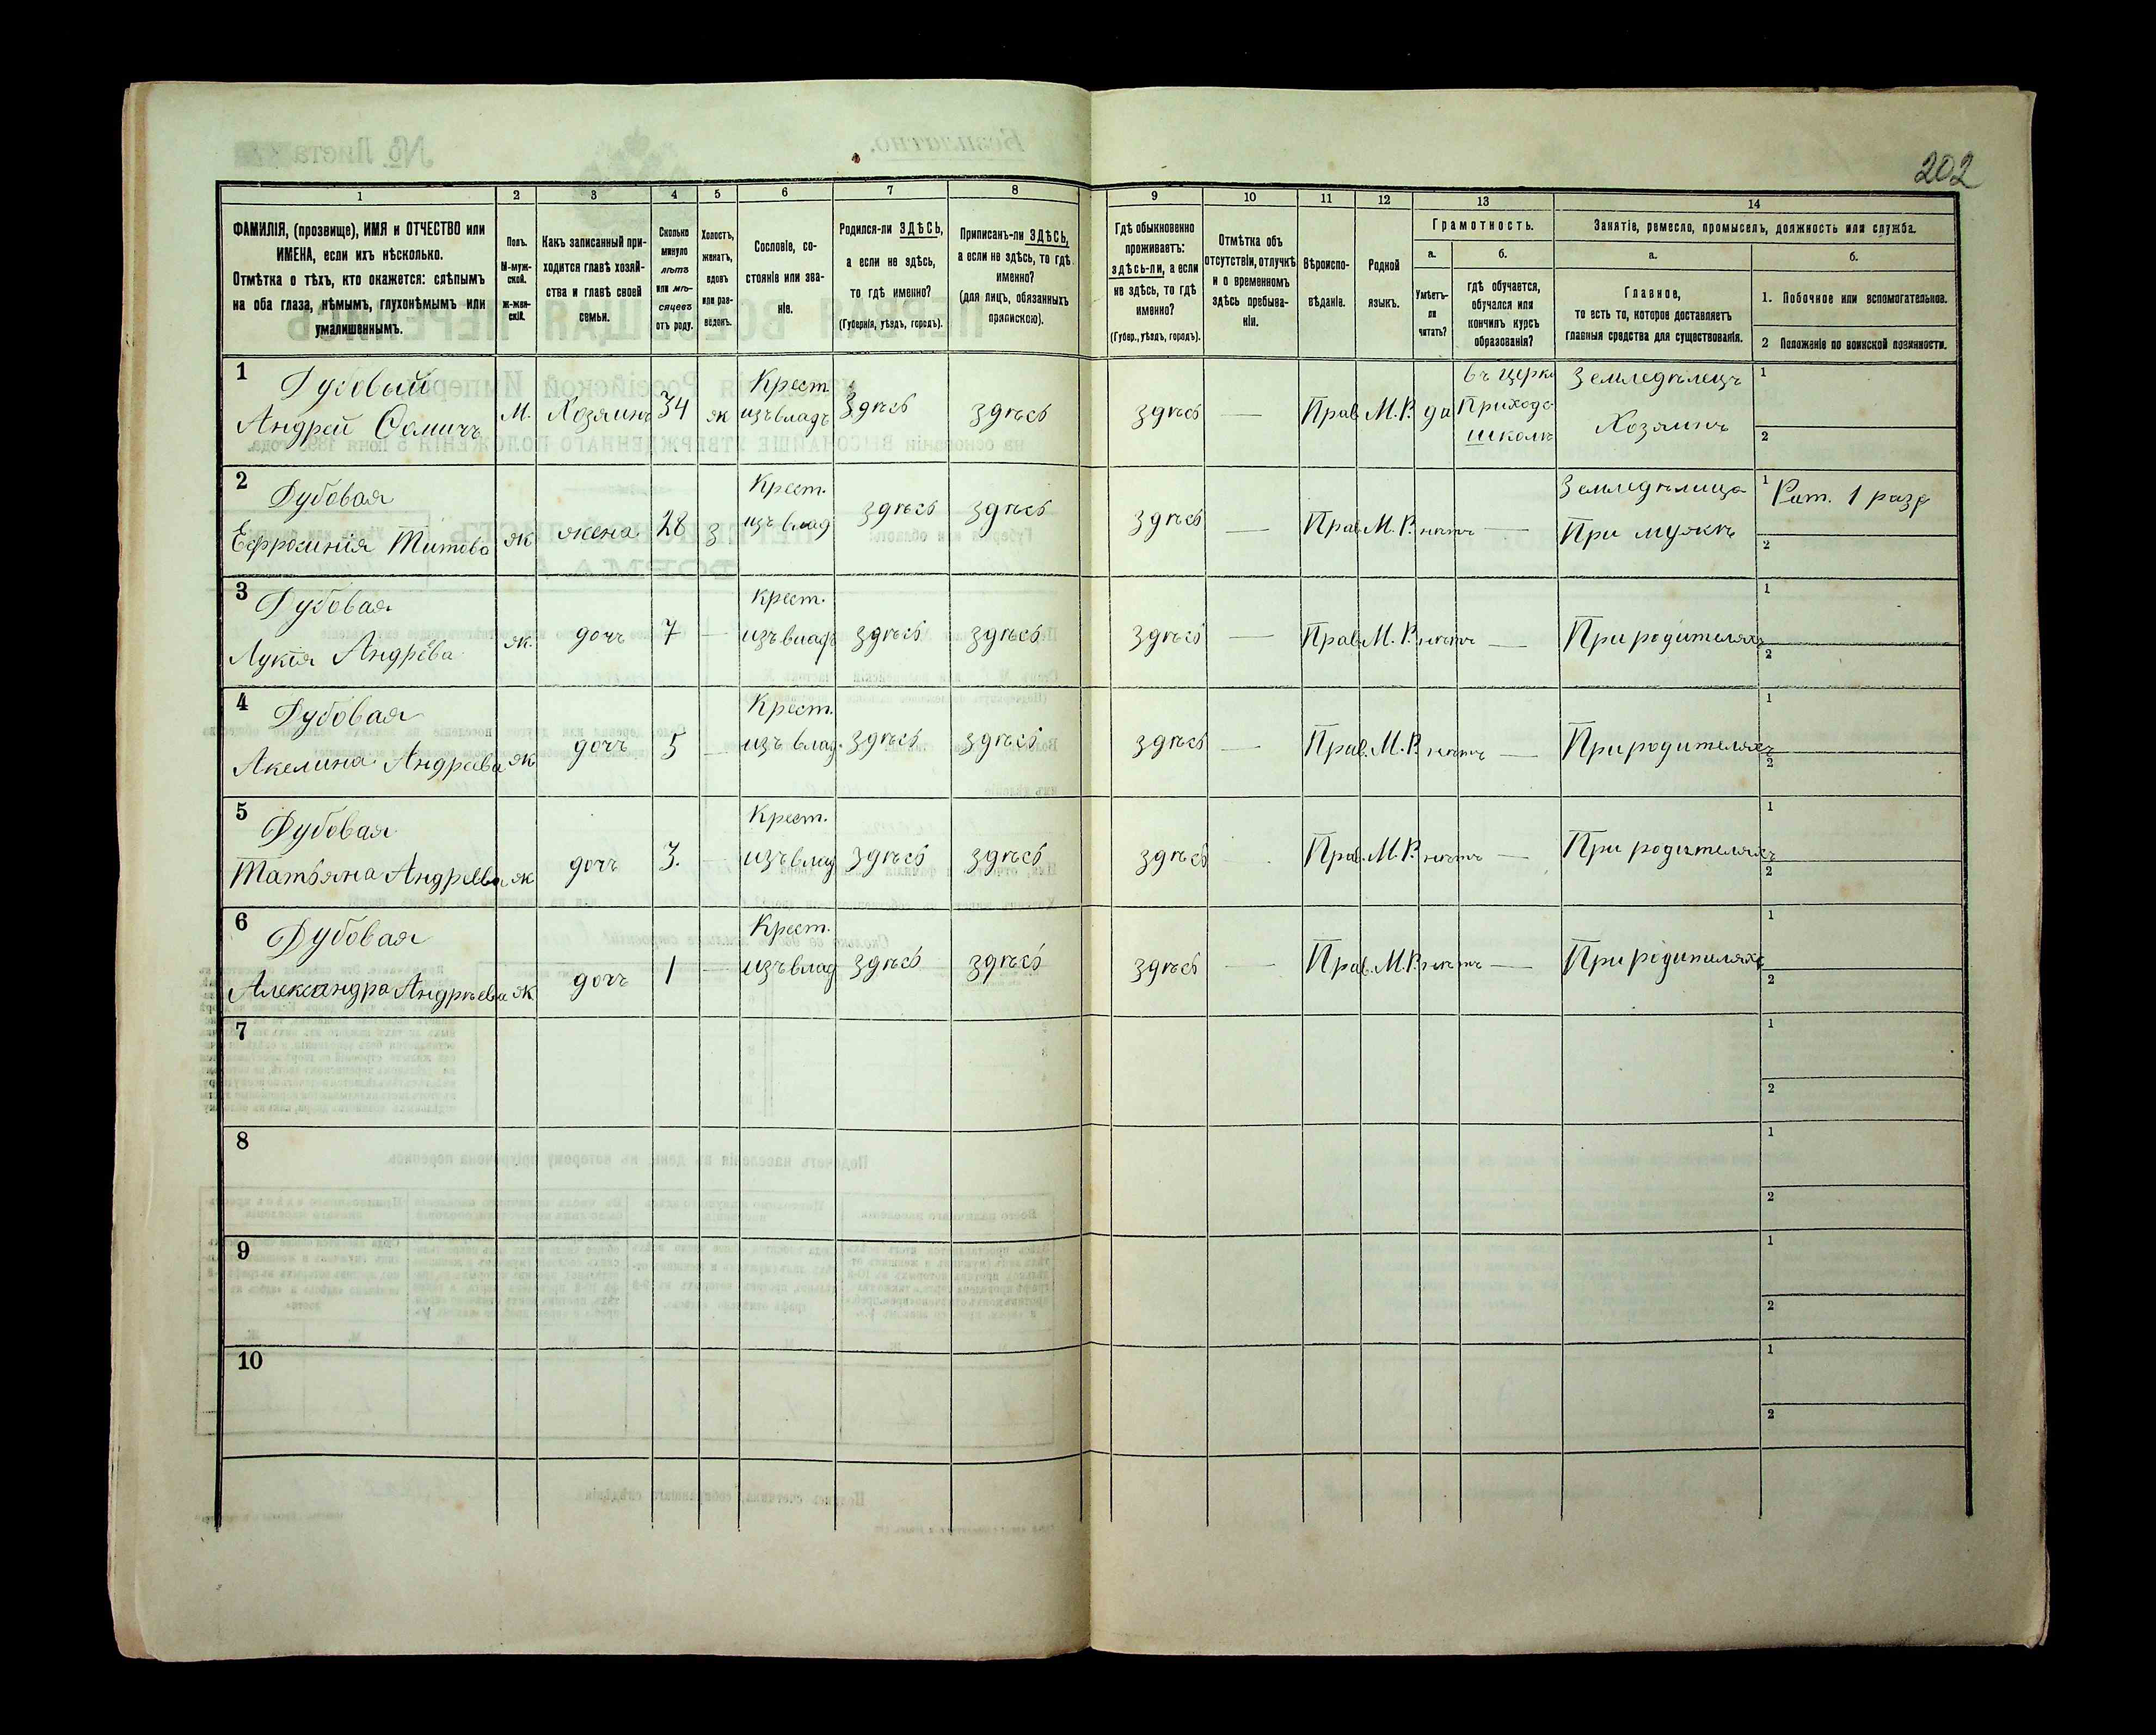 202
1 2 3 4 5 6 7 8 9 10 11 12 13 14
ФАМИЛІЯ, (прозвище), ИМЯ и ОТЧЕСТВО или
ИМЕНА, если ихъ нѣсколько.
Отмѣтка о тѣхъ, кто окажется: слѣпымъ
на оба глаза, нѣмымъ, глухонѣмымъ или
умалишеннымъ.
Полъ.
М-муж-
ской.
ж-жен-
скій.
Какъ записанный при-
ходится главѣ хозяй-
ства и главѣ своей
семьи.
Сколько
минуло
лѣтъ
или мѣ-
сяцевъ
отъ роду.
Холостъ,
женатъ,
вдовъ
или раз-
веденъ.
Сословіе, со-
стояніе или зва-
ніе.
Родился-ли ЗДѢСЬ,
а если не здѣсь,
то гдѣ именно?
(Губернія, уѣздъ, городъ).
Приписанъ-ли ЗДѢСЬ,
а если не здѣсь, то гдѣ
именно?
(для лицъ, обязанныхъ
припискою).
Гдѣ обыкновенно
проживаетъ:
здѣсь-ли, а если
не здѣсь, то гдѣ
именно?
(Губер., уѣздъ, городъ).
Отмѣтка объ
отсутствіи, отлучкѣ
и о временномъ
здѣсь пребыва-
ніи.
Вѣроиспо-
вѣданіе.
Родной
языкъ.
Грамотность.
а.
Умѣетъ-
ли
читать?
б.
гдѣ обучается,
обучался или
кончилъ курсъ
образованія?
Занятіе, ремесло, промыселъ, должность или служба.
а.
Главное,
то есть то, которое доставляетъ
главныя средства для существованія.
б.
1. Побочное или вспомогательное.
2 Положеніе по воинской повинности.
1 Дубовый Крест въ церко Земледѣлецъ 1
Андрей Ѳомичъ М. Хозяинъ 34 ж изъ владѣ Здѣсь здѣсь здѣсь — Прав. М. Р. да Приходс
школѣ Хозяинъ 2
2 Дубовая Крест. Земледѣлица 1 Рат. 1 разр
Евфросинія Титова ж жена 28 з изъ влад здѣсь здѣсь здѣсь — Прав. М. Р. нѣтъ — При мужѣ 2
3 Дубовая крест. 1
Лукія Андрѣева ж. дочь 7 — изъ влад здѣсь здѣсь здѣсь — Прав. М. Р. нѣтъ — При родителяхъ 2
4 Дубовая Крест. 1
Акелина Андреева ж дочь 5 — изъ влад. здѣсь здѣсь здѣсь — Прав. М. Р. нѣтъ — При родителяхъ 2
5 Дубовая Крест. 1
Татьяна Андрѣева ж дочь 3. — изъ влад здѣсь здѣсь здѣсь — Прав. М. Р. нѣтъ — При родителяхъ 2
6 Дубовая Крест. 1
Александра Андрѣева ж дочь 1 — изъ влад здѣсь здѣсь здѣсь — Прав. М. Р. нѣтъ — При родителяхъ 2
7 1
2
8 1
2
9 1
2
10 1
2